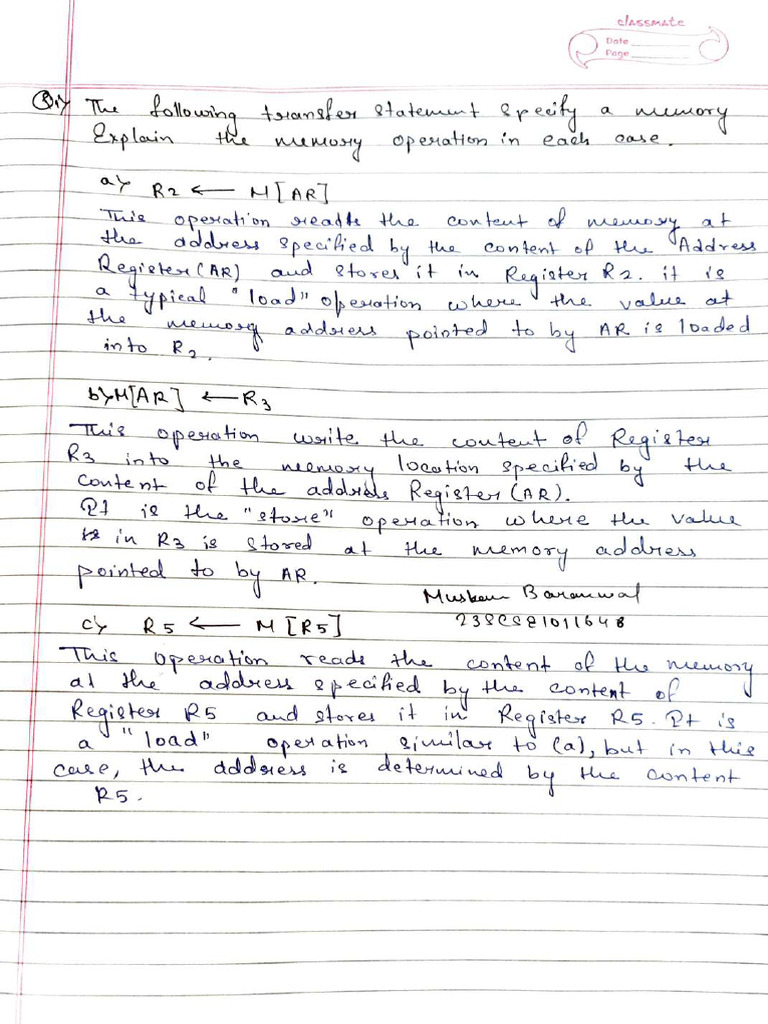 classmate
Date
Page
Q.1> The following transfer statement specify a memory
Explain the memory operation in each case.
a> R2 ← M[AR]
This operation reads the content of memory at
the address specified by the content of the Address
Register (AR) and stores it in Register R2. it is
a typical "load" operation where the value at
the memory address pointed to by AR is loaded
into R2.
b> M[AR] ← R3
This operation write the content of Register
R3 into the memory location specified by the
content of the address Register (AR).
It is the "store" operation where the value
in R3 is stored at the memory address
pointed to by AR.
Muskan Baranwal
c> R5 ← M[R5]
This operation reads the content of the memory
at the address specified by the content of
Register R5 and stores it in Register R5. It is
a "load" operation similar to (a), but in this
case, the address is determined by the content
R5.